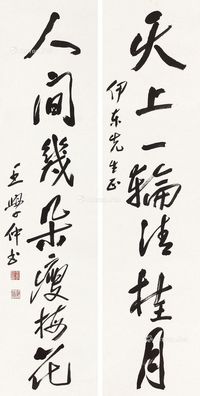 天上一轮清桂月
伊东先生正
人间几朵瘦梅花
王学仲书